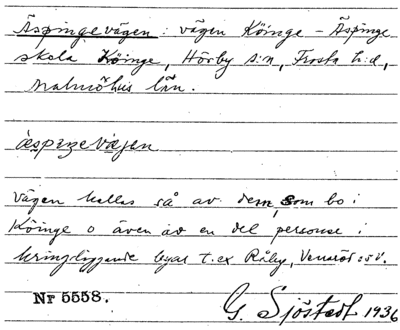 Äspingevägen: vägen Köinge – Äspinge
skola Köinge, Hörby s:n, Frosta h:d,
Malmöhus län.
äspiŋevä̱gen
Vägen kallas så av dem, som bo i
Köinge o även av en del personer i
kringliggande byar t.ex Råby,
Nr 5558.
G. Sjöstedt 1936